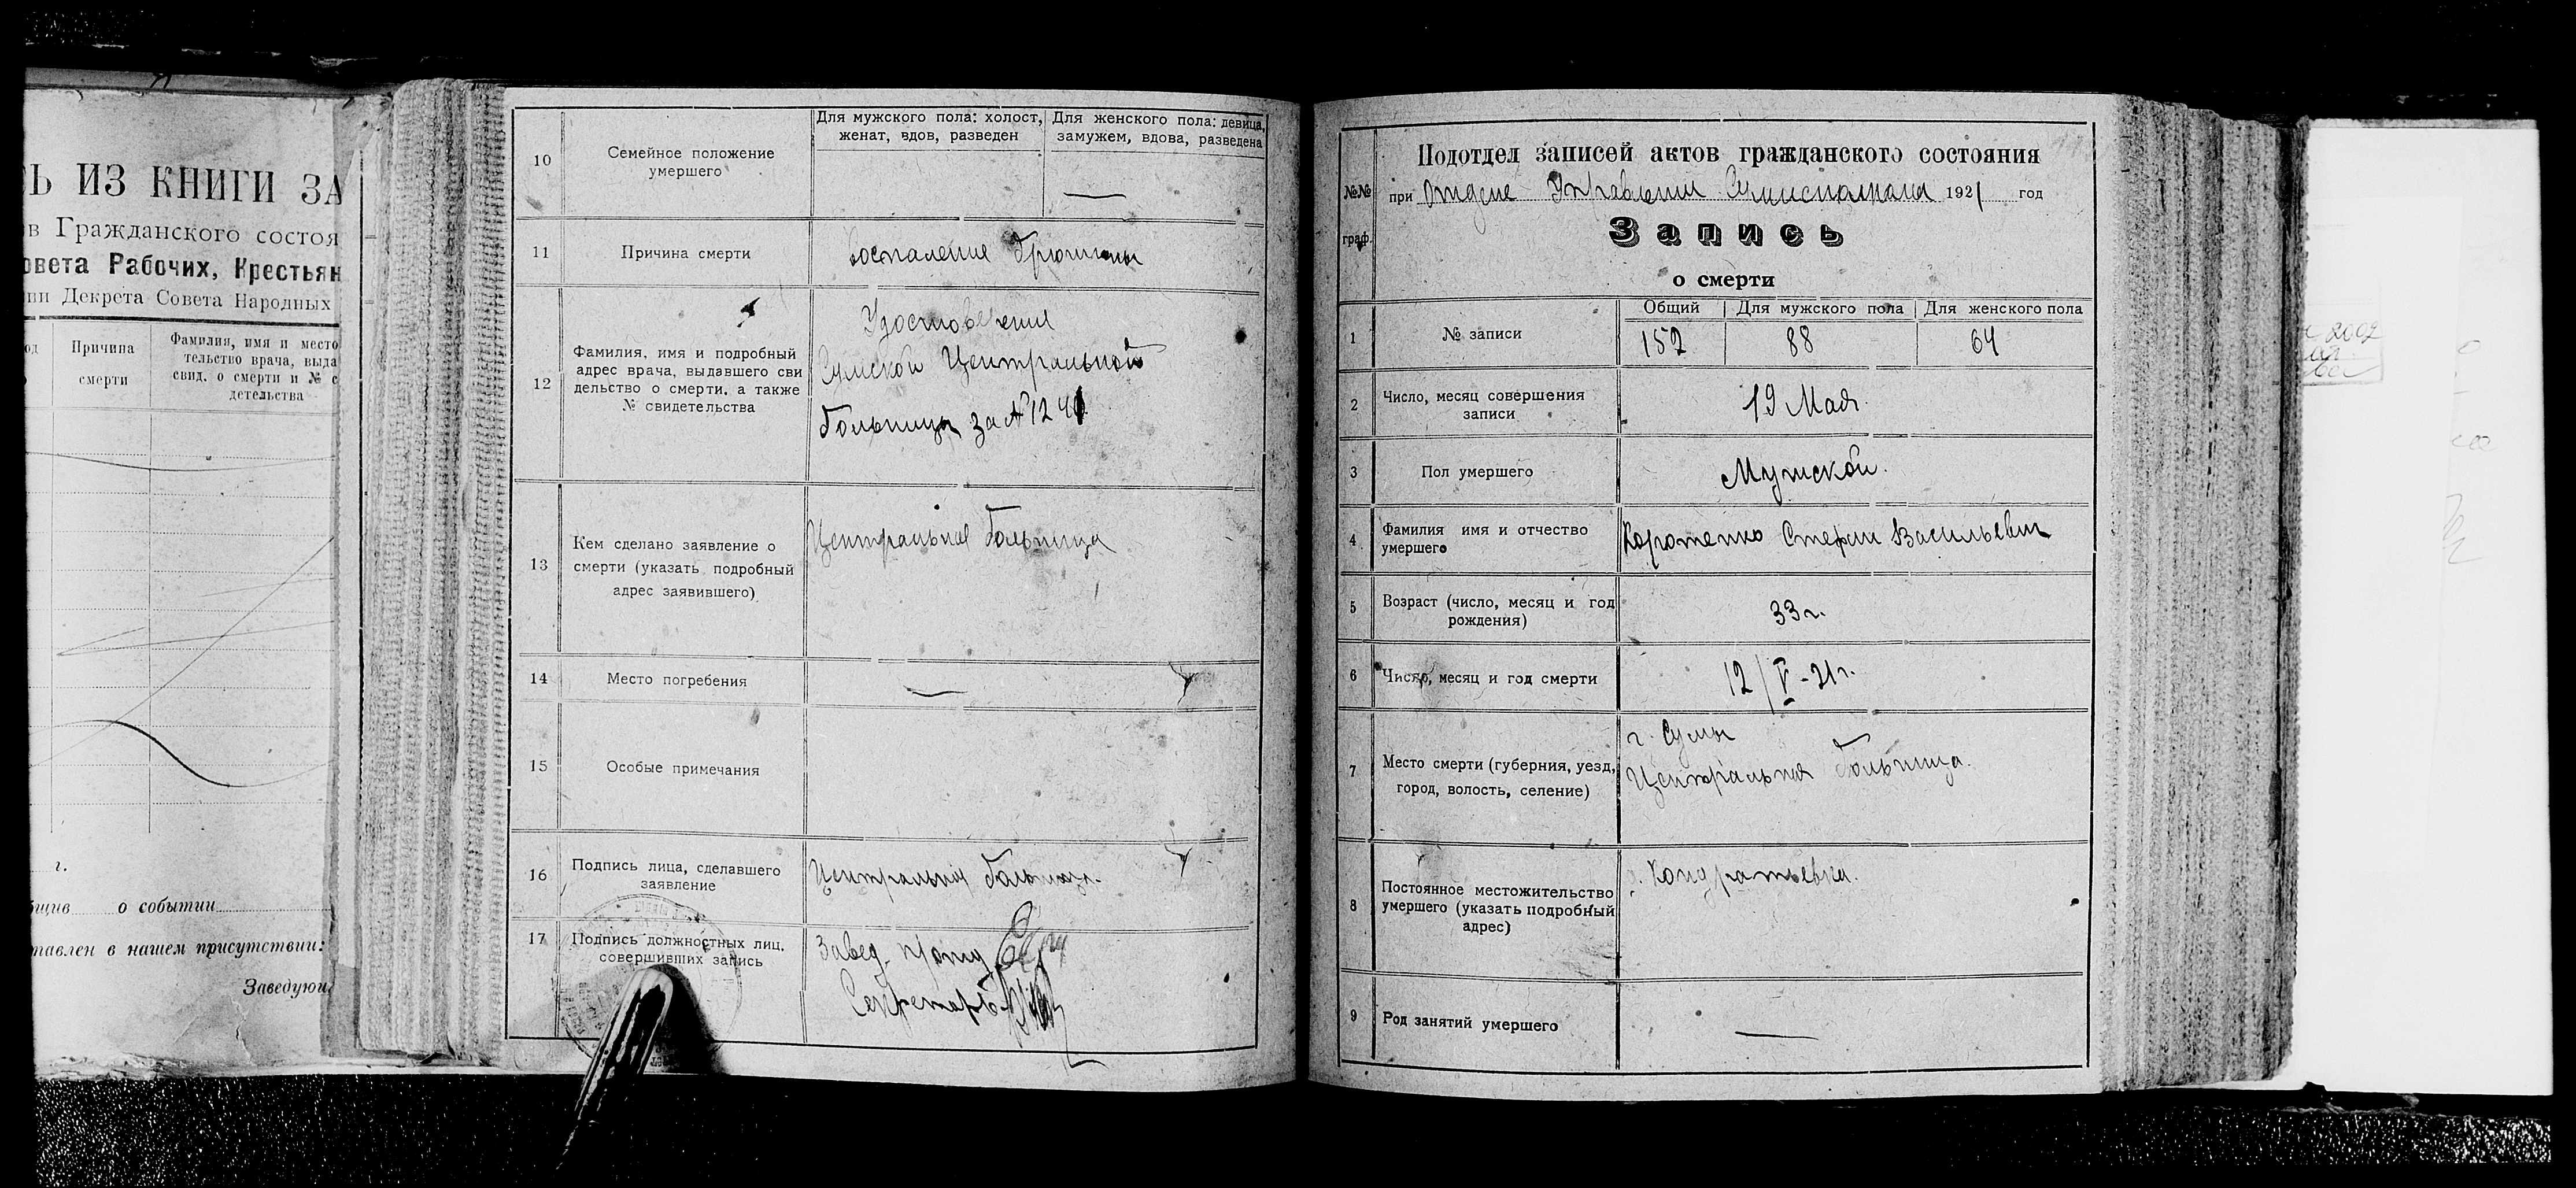 Ь ИЗ КНИГИ ЗА
в Гражданского состоя
овета Рабочих, Крестьян
ии Декрета Совета Народных
од
Причина
смерти
Фамилия, имя и место
тельство врача, выда
свид. о смерти и № с
детельства
г.
бщив о событии
тавлен в нашем присутствии:
Заведующ
10
Семейное положение
умершего
Для мужского пола: холост,
женат, вдов, разведен
Для женского пола: девица,
замужем, вдова, разведена
—
11
Причина смерти
воспаление брюшины
12
Фамилия, имя и подробный
адрес врача, выдавшего сви
детельство о смерти, а также
№ свидетельства
Удостоверения
Сумской Центральной
больницы за №1241
13
Кем сделано заявление о
смерти (указать подробный
адрес заявившего)
Центральная больница
14
Место погребения
—
15
Особые примечания
16
Подпись лица, сделавшего
заявление
Центральная больница.
17
Подпись должностных лиц,
совершивших запись
Завед. п/отд
Секретарь
№№
граф.
Подотдел записей актов гражданского состояния
при Отделе Управления Сумисполкома 1921 год
Запись
о смерти
1
№ записи
Общий
Для мужского пола
Для женского пола
152
88
64
2
Число, месяц совершения
записи
19 Мая.
3
Пол умершего
Мужской.
4
Фамилия имя и отчество
умершего
Коротенко Стефан Васильевич
5
Возраст (число, месяц и год
рождения)
33 г.
6
Число, месяц и год смерти
12/V-21 г.
7
Место смерти (губерния, уезд,
город, волость, селение)
г. Сумы
Центральная больница.
8
Постоянное местожительство
умершего (указать подробный
адрес)
Кондратьевка.
9
Род занятий умершего
—
2002